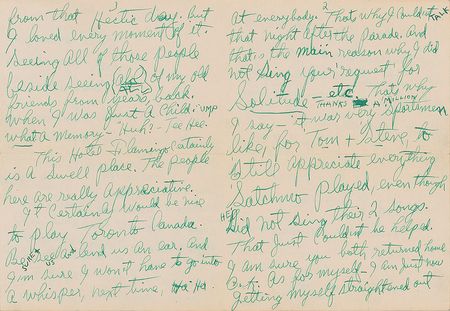 3
from that Hectic day. but
I loved every moment of it.
Seeing all of those people
beside seeing of my old
friends from years, back.
When I was Just a Child. ump
What a memory - Huh? - Tee Hee.
This Hotel Flamingo, Certainly
is a Swell place. The people
here are really Appreciative.
It Certainly would be nice
to play Toronto Canada.
lend us an ear. And
I'm sure I won't have to go into
A whisper, next time, Ha Ha.
2
At everybody. That's why I Couldn't TALK
that night after the Parade. And
that's the main reason why I did
not Sing your request for
Solitude - etc. That's why
THANKS A MILLION
I say - it was very Sportsmen
like, for Tom + Steve, to
Still Appreciate everything
Satchmo Played, even though
HE Did not Sing their 2 songs.
That Just Couldn't be helped.
I am sure you both returned home
O.K. As for myself - I am Just now
getting myself straightened out